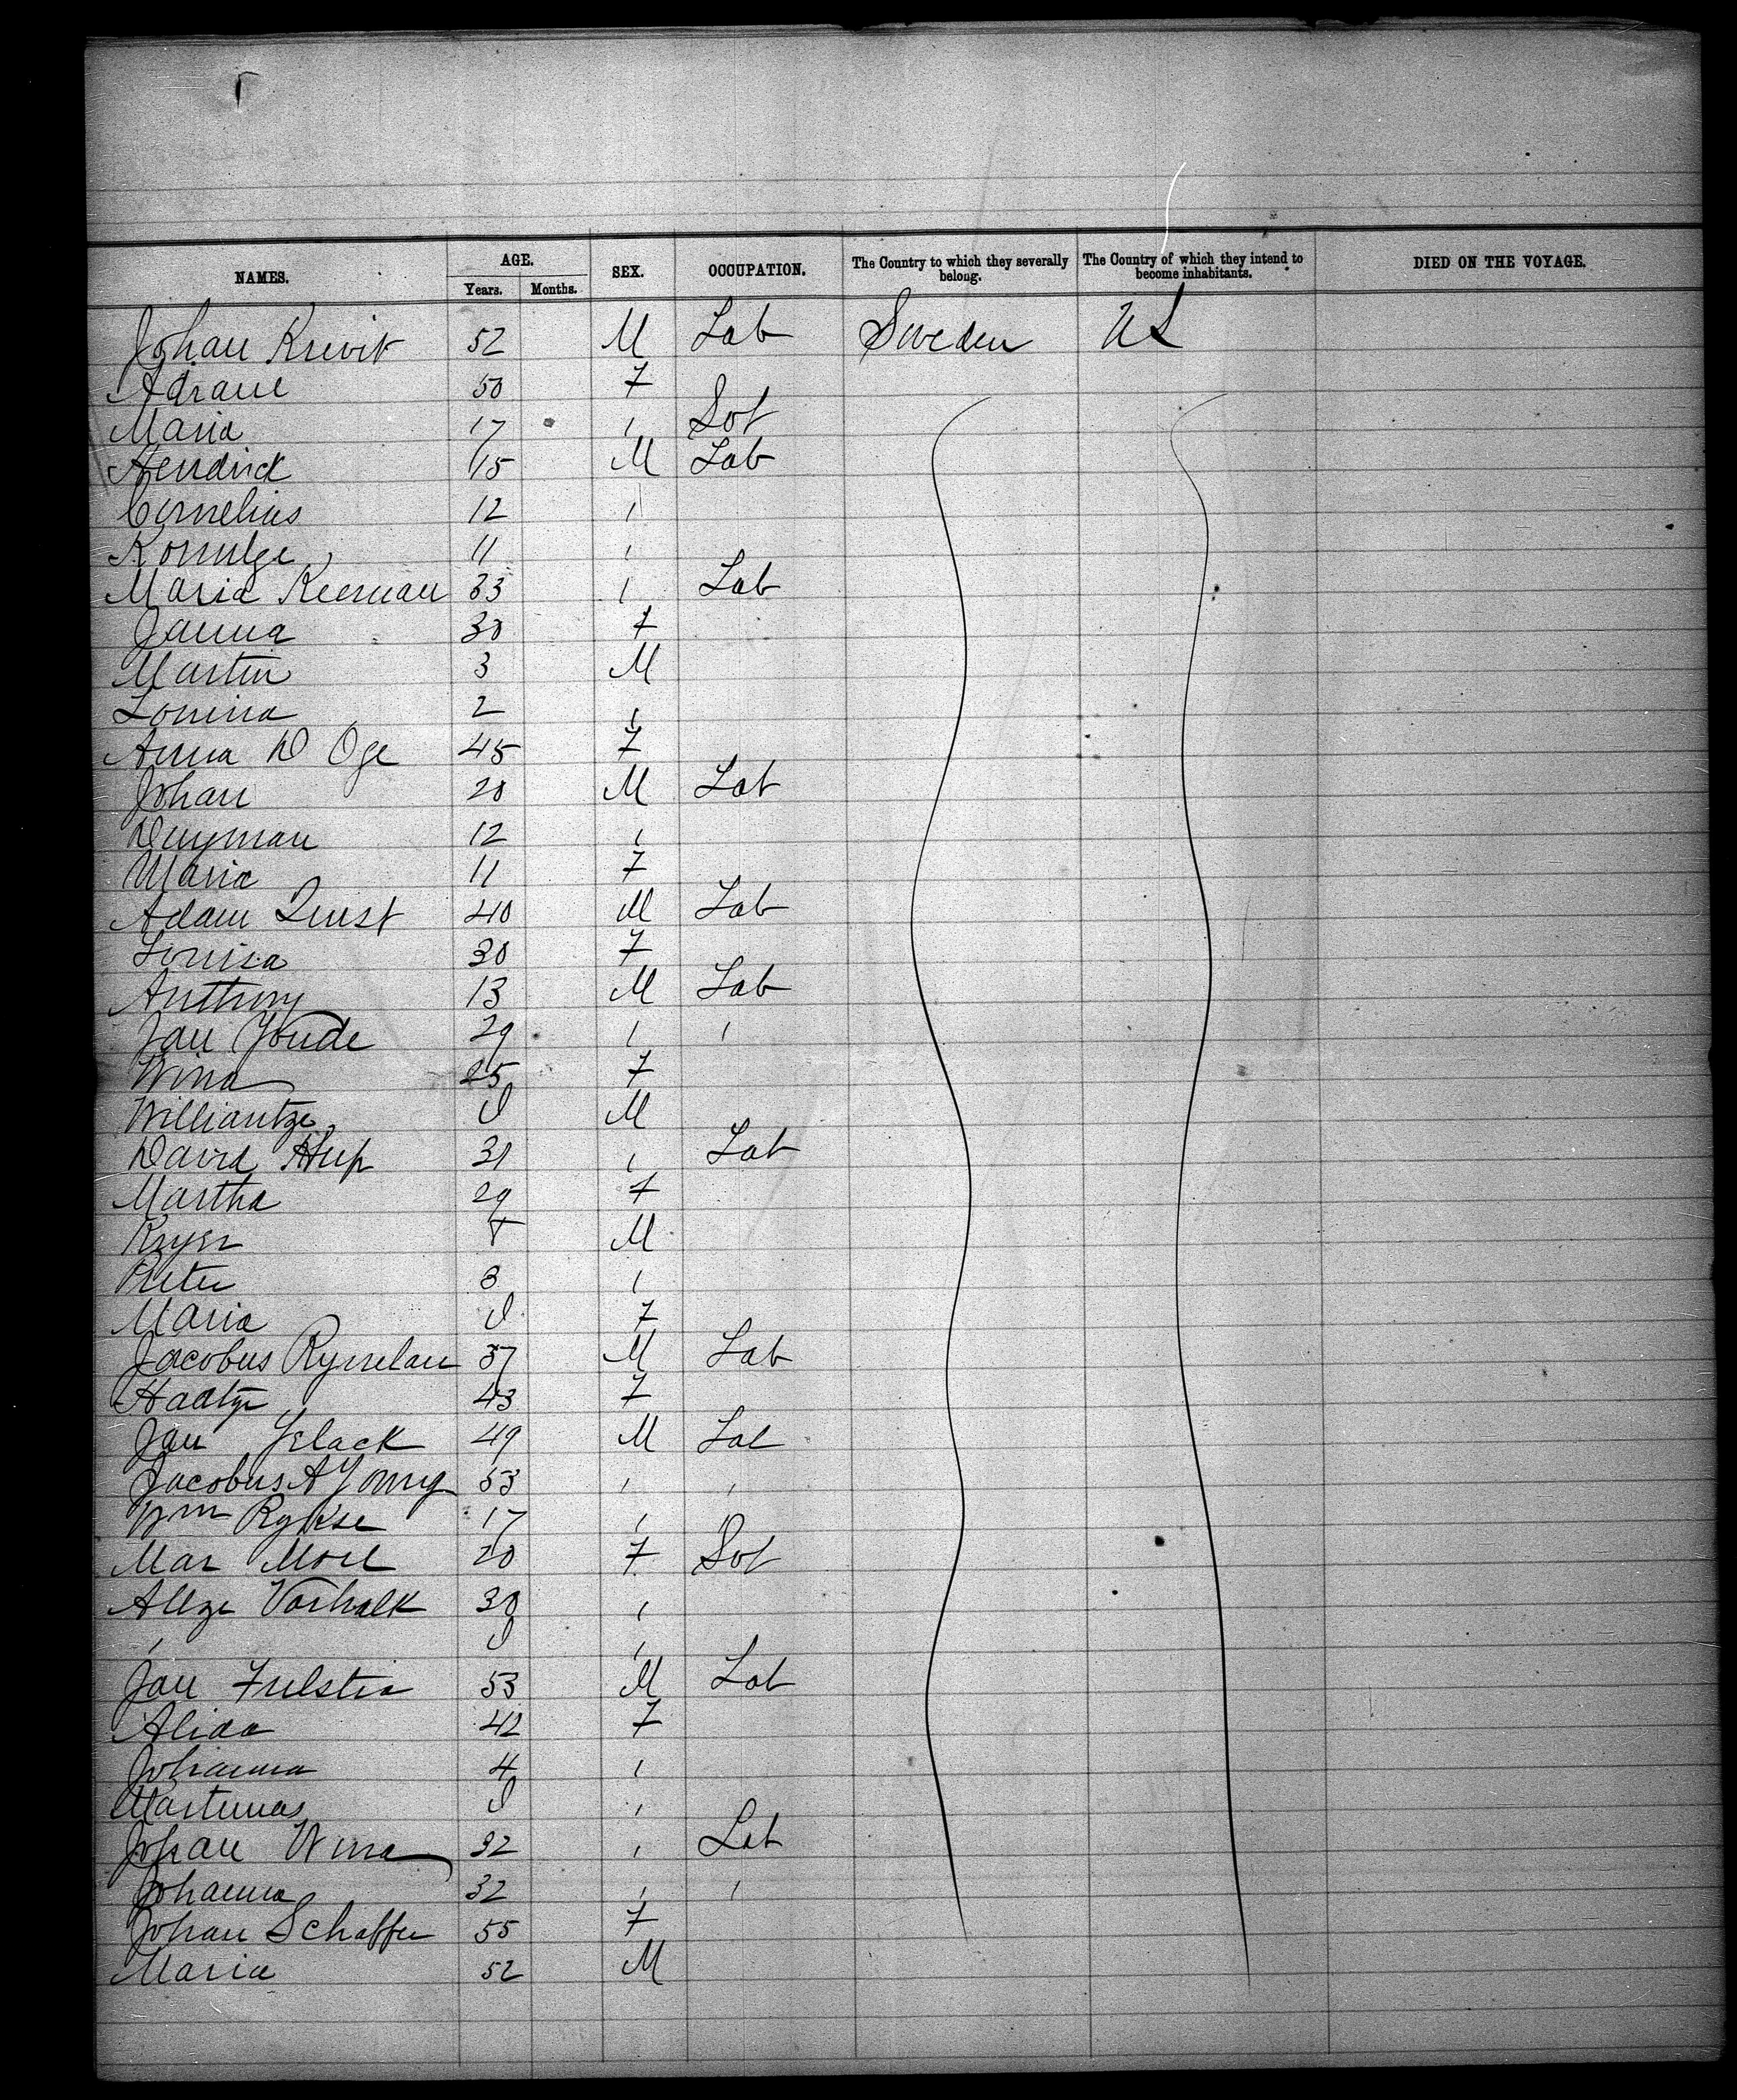 NAMES. AGE. Years. Months. SEX. OCCUPATION. The Country to which they severally belong. The Country of which they intend to become inhabitants. DIED ON THE VOYAGE.
Johan Kruit 52 M Lab Sweden US
Adraue 50 F
Maria 17 " Sot
Hendrick 15 M Lab
Cornelius 12 "
11 "
Maria Keeman 33 " Lab
Janna 30 F
Martin 3 M
Lonina 2 "
Anna D Oge 45 F
Johan 20 M Lab
Duyman 12 "
Maria 11 F
Adam Quist 40 M Lab
Louisa 30 F
Anthony 13 M Lab
Jan Jonde 29 " "
Wina 25 F
Williantze M
David Hup 31 " Lab
Martha 29 F
Kryn M
Pieter 3 "
Maria F
Jacobus Rymelan 37 M Lab
Haatje 43 F
Jan Yslack 49 M Lab
Jacobus A Jong 53 " "
Wm Rykse 17 " "
Mar Moel 20 F Sot
Allze Vorhalk 30 "
" "
Jan Fulstia 53 M Lab
Alida 42 F
Johanna 4 "
Martinus "
Johan Wina 32 " Lab
Johanna 32 " "
Johan Schaffer 55 F
Maria 52 M